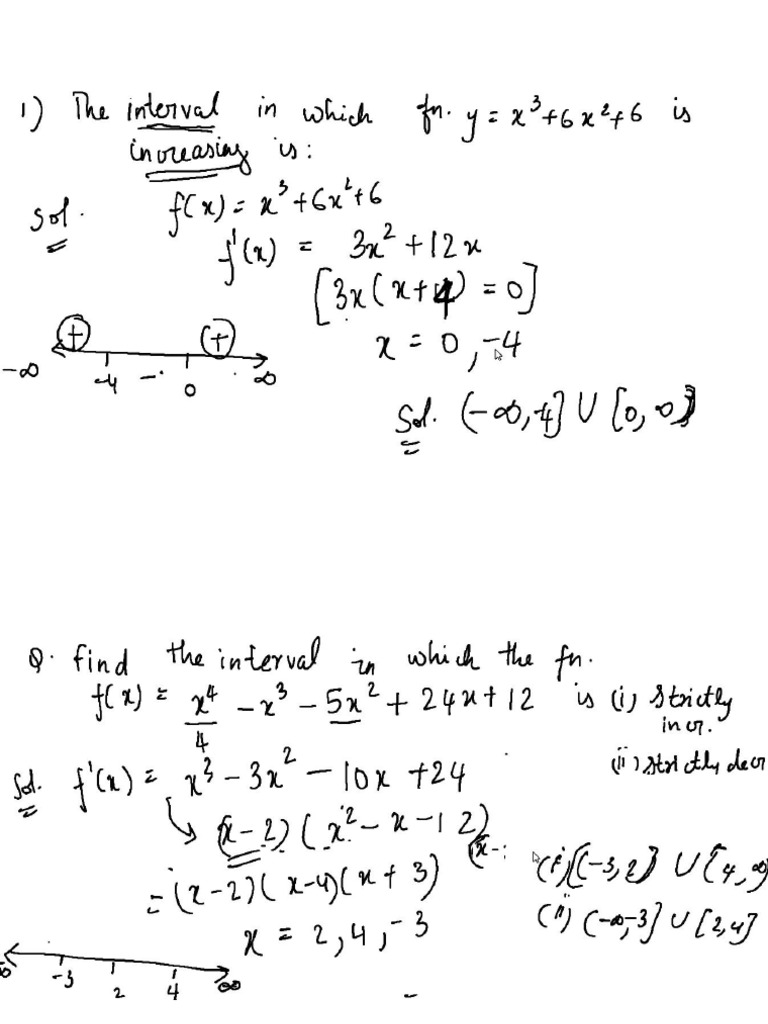 1) The interval in which fn. y = x³+6x²+6 is
increasing is:
Sol. f(x) = x³+6x²+6
f'(x) = 3x²+12x
[3x(x+4) = 0]
x = 0, -4
+ +
-∞ -4 - 0 ∞
Sol. (-∞,-4] ∪ [0, ∞)
Q. find the interval in which the fn.
f(x) = x⁴/4 - x³ - 5x² + 24x+12 is (i) strictly
incr.
(ii) strictly decr
Sol. f'(x) = x³-3x²-10x+24
(x-2)(x²-x-12)
(x-
= (x-2)(x-4)(x+3)
(i) [-3,2] ∪ [4,∞)
x = 2, 4, -3
(ii) (-∞,-3] ∪ [2,4]
-3 2 4 ∞